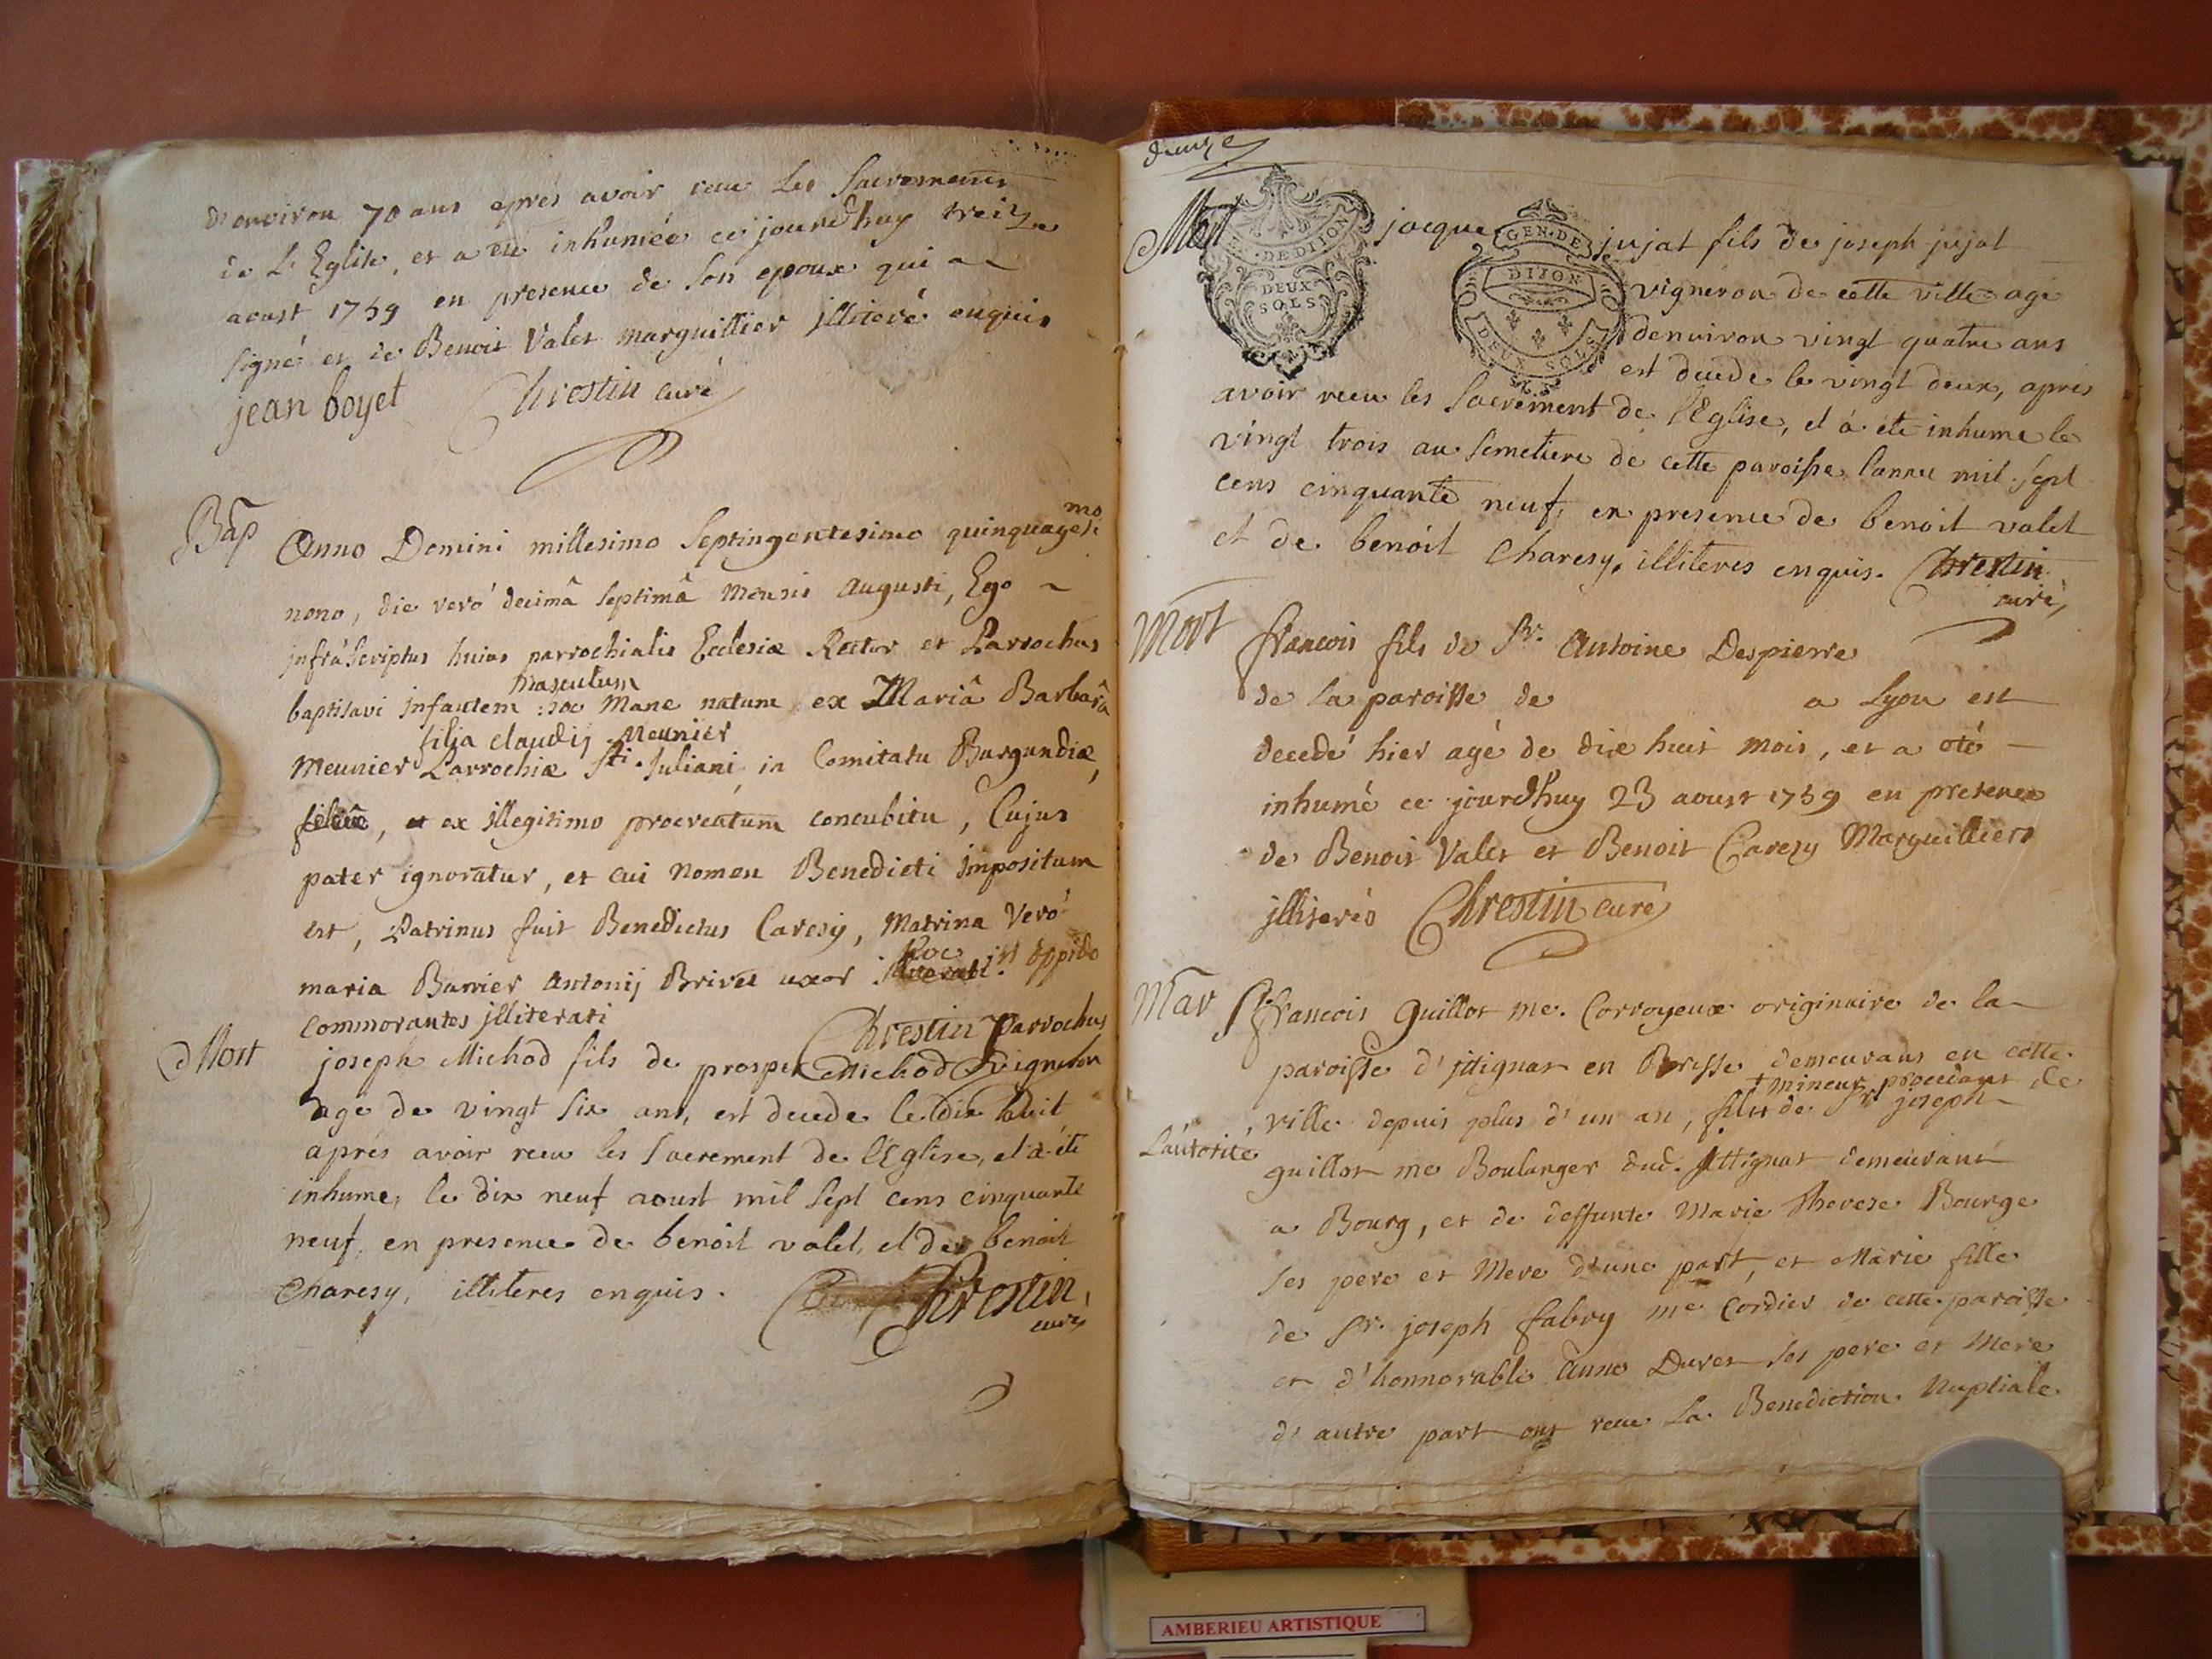 d'environ 70 ans apres avoir reçu Les Sacrements
de L'Eglise, et a été inhumée ce jourd'huy treize
aoust 1759 en presence de son epoux qui a
signé et de Benoit Valet marguillier illiteré enquis
jean boyet Chrestin curé
Bap
Anno Domini millesimo Septingentesimo quinquagesimo
nono, die veró decimâ septimâ mensis Augusti, Ego
infrà scriptus huius parrochialis Ecclesiæ Rector et Parrochus
masculum
baptisavi infantem mane natum ex Mariâ Barbarâ
filia claudij Meunier
Meunier Parrochiæ Sti. Juliani in Comitatu Burgundiæ,
et ex illegitimo procreatum concubitu, Cujus
pater ignoratur, et cui nomen Benedicti impositum
est, Patrinus fuit Benedictus Caresy, Matrina Veró
hoc
maria Burrier Antonij Brivet uxor in oppido
commorantes illiterati Chrestin Parrochus
Mort
joseph Michod fils de prosper Michod vigneron
agé de vingt six ans, est decede le dix huit
aprés avoir reçu les sacrement de l'Eglise, et a été
inhume, le dix neuf aoust mil sept cens cinquante
neuf, en presence de benoit valet, et de benoit
Charesy, illiteres enquis. Chrestin,
curé
douze
Mort
DE DIJON
DEUX
SOLS
GEN. DE
DIJON
DEUX SOLS
jacque jujat fils de joseph jujat
vigneron de cette ville agé
denviron vingt quatre ans
est decede le vingt deux, apres
avoir reçu les sacrement de l'Eglise, et à été inhume le
vingt trois au semetiere de cette paroisse lannee mil sept
cens cinquante neuf, en presence de benoit valet
et de benoit Charesy, illiteres enquis. Chrestin
curé,
Mort
francois fils de Sr. Antoine Despierre
de la paroisse de a Lyon est
decedé hier agé de dix huit mois, et a eté
inhumé ce jourd'huy 23 aoust 1759 en presence
de Benoit Valet et Benoit Caresy Marguilliers
illiterés Chrestin curé
Mar
Sr. francois Guillot me. Corroyeux originaire de la
paroisse d'jttignat en Bresse demeurans en cette
+ mineur procedant de
ville depuis plus d'un an, fils de Sr joseph
L'autorité
guillot me Boulanger dud. Attignat demeurant
a Bourg, et de deffunte Marie Therese Bourge
ses pere et Mere d'une part, et Marie fille
de Sr. joseph fabry me Cordier de cette paroisse
et d'honnorable Anne Duret ses pere et Mere
d'autre part ont reçu La Benediction Nuptiale
AMBERIEU ARTISTIQUE